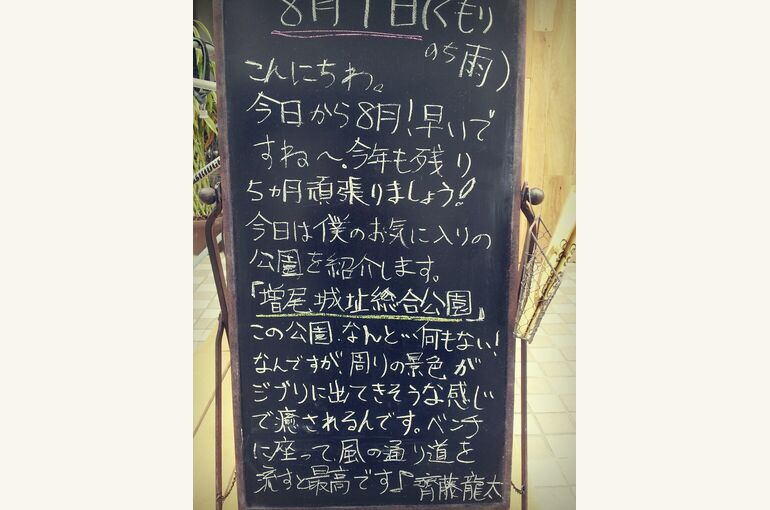 8月1日(くもり
のち雨)
こんにちわ。
今日から8月!早いで
すね〜。今年も残り
5ヵ月頑張りましょう!
今日は僕のお気に入りの
公園を紹介します。
「増尾城址総合公園」
この公園、なんと…何もない!
なんですが、周りの景色が
ジブリに出てきそうな感じ
で癒されるんです。ベンチ
に座って、風の通り道を
流すと最高です♪ 齊藤龍太